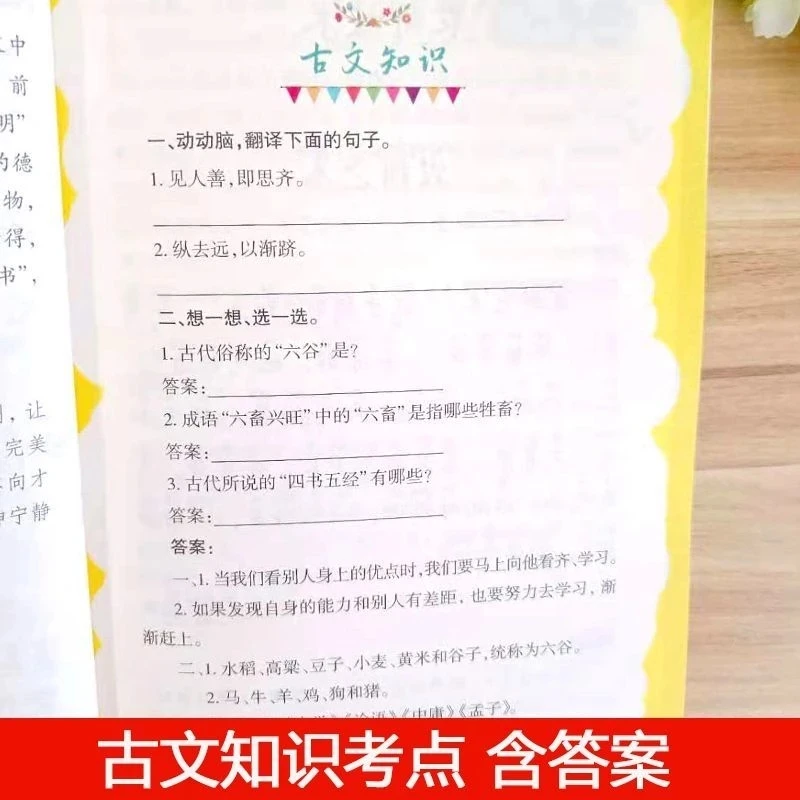 中
前
明”
的德
物,
得,
书”,
让
完美
向才
宁静
古文知识
一、动动脑,翻译下面的句子。
1. 见人善,即思齐。
2. 纵去远,以渐跻。
二、想一想、选一选。
1. 古代俗称的“六谷”是?
答案:
2. 成语“六畜兴旺”中的“六畜”是指哪些牲畜?
答案:
3. 古代所说的“四书五经”有哪些?
答案:
答案:
一、1. 当我们看别人身上的优点时,我们要马上向他看齐、学习。
2. 如果发现自身的能力和别人有差距, 也要努力去学习, 渐
渐赶上。
二、1. 水稻、高粱、豆子、小麦、黄米和谷子,统称为六谷。
2. 马、牛、羊、鸡、狗和猪。
《论语》《中庸》《孟子》。
古文知识考点 含答案